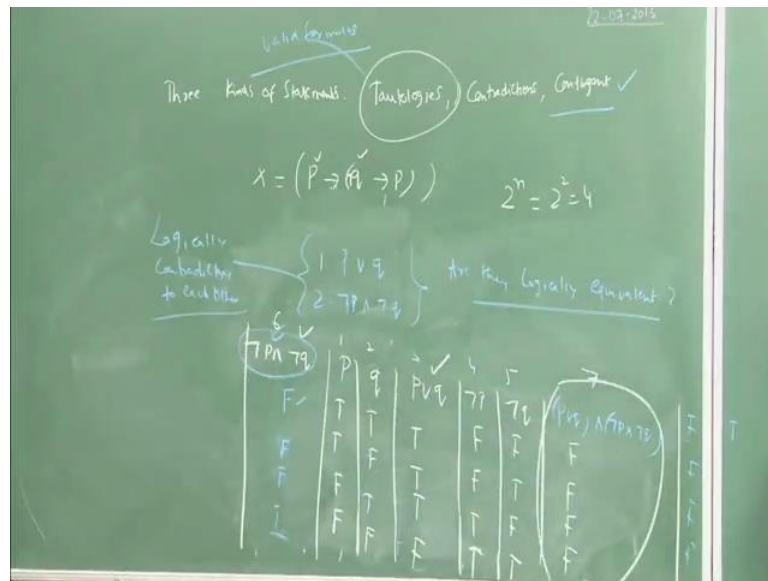 22-07-2013
Valid formulas
Three Kinds of Statements: Tautologies, Contradictions, Contingent ✓
X = (P → (q → P))
2ⁿ = 2² = 4
Logically Contradictory to each other
1 P ∨ q
2. ¬P ∧ ¬q
Are they Logically equivalent?
6 1 2 3 4 5 7
¬P ∧ ¬q P q P∨q ¬P ¬q (P∨q) ∧ (¬P ∧ ¬q)
F T T T F F F F T
F T F T F T F F
F F T T T F F F
T F F F T T F F